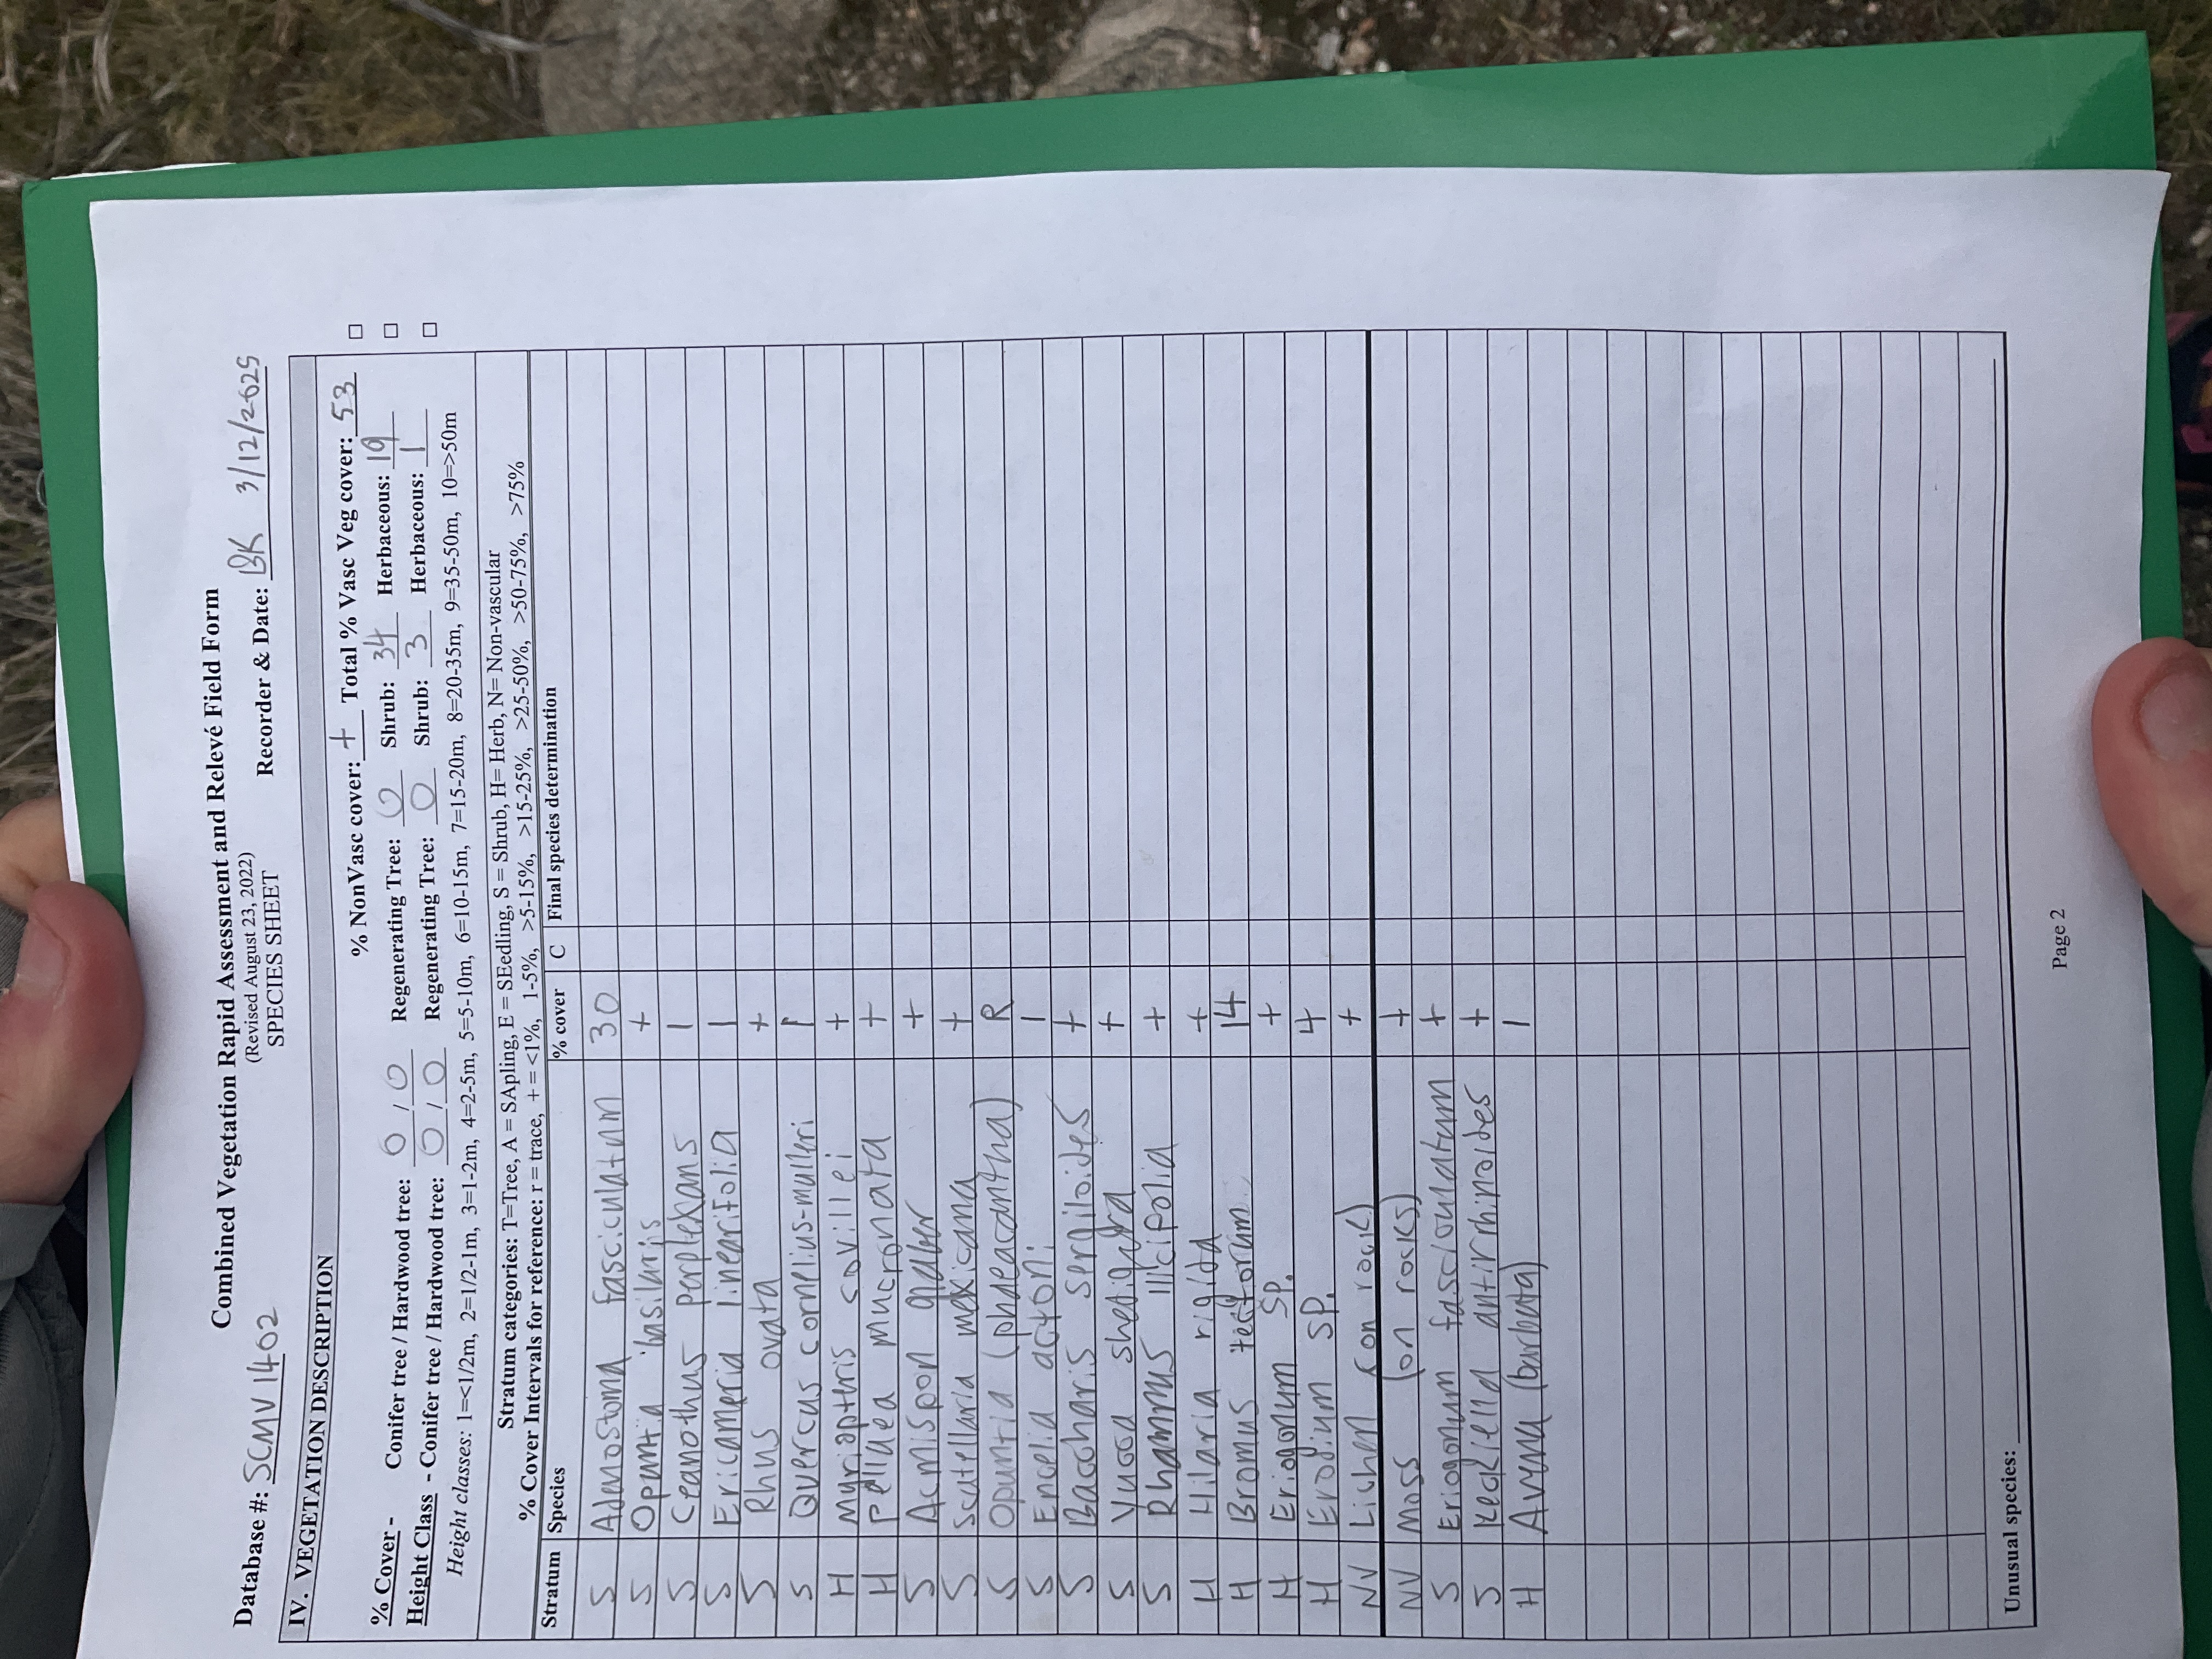 Combined Vegetation Rapid Assessment and Relevé Field Form
(Revised August 23, 2022)
SPECIES SHEET
Database #: SCMV1402 Recorder & Date: BK 3/12/2025
IV. VEGETATION DESCRIPTION
% NonVasc cover: + Total % Vasc Veg cover: 53 □
% Cover - Conifer tree / Hardwood tree: 0 / 0 Regenerating Tree: 0 Shrub: 34 Herbaceous: 19 □
Height Class - Conifer tree / Hardwood tree: 0 / 0 Regenerating Tree: 0 Shrub: 3 Herbaceous: 1 □
Height classes: 1=<1/2m, 2=1/2-1m, 3=1-2m, 4=2-5m, 5=5-10m, 6=10-15m, 7=15-20m, 8=20-35m, 9=35-50m, 10=>50m
Stratum categories: T=Tree, A = SApling, E = SEedling, S = Shrub, H= Herb, N= Non-vascular
% Cover Intervals for reference: r = trace, + = <1%, 1-5%, >5-15%, >15-25%, >25-50%, >50-75%, >75%
Stratum Species % cover C Final species determination
S Adenostoma fasciculatum 30
S Opuntia basilaris +
S Ceanothus perplexans 1
S Ericameria linearifolia 1
S Rhus ovata +
S Quercus cornelius-mulleri 1
H Myriopteris covillei +
H Pellaea mucronata +
S Acmispon glaber +
S Scutellaria mexicana +
S Opuntia (phaeacantha) R
S Encelia actoni 1
S Baccharis sergiloides +
S Yucca shedigera +
S Rhamnus illicifolia +
H Hilaria rigida +
H Bromus tectorum 14
H Eriogonum sp. +
H Erodium sp. 4
NV Lichen (on rock) +
NV Moss (on rocks) +
S Eriogonum fasciculatum +
S Keckiella antirrhinoides +
H Avena (barbata) 1
Unusual species:
Page 2